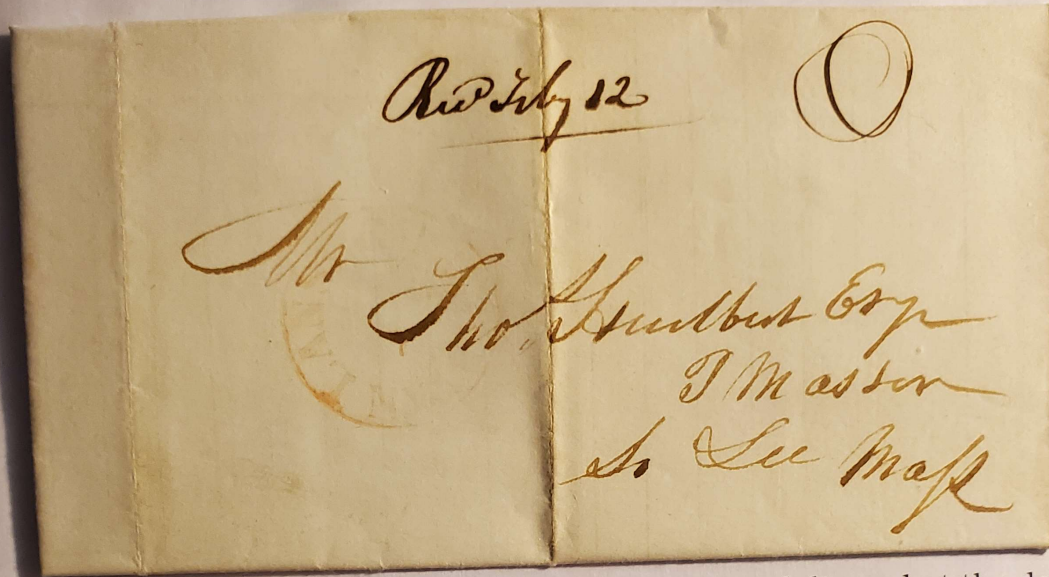 Recd Feby 12
Mr
Tho. Hurlbut Esq
P Master
So Lee Mass